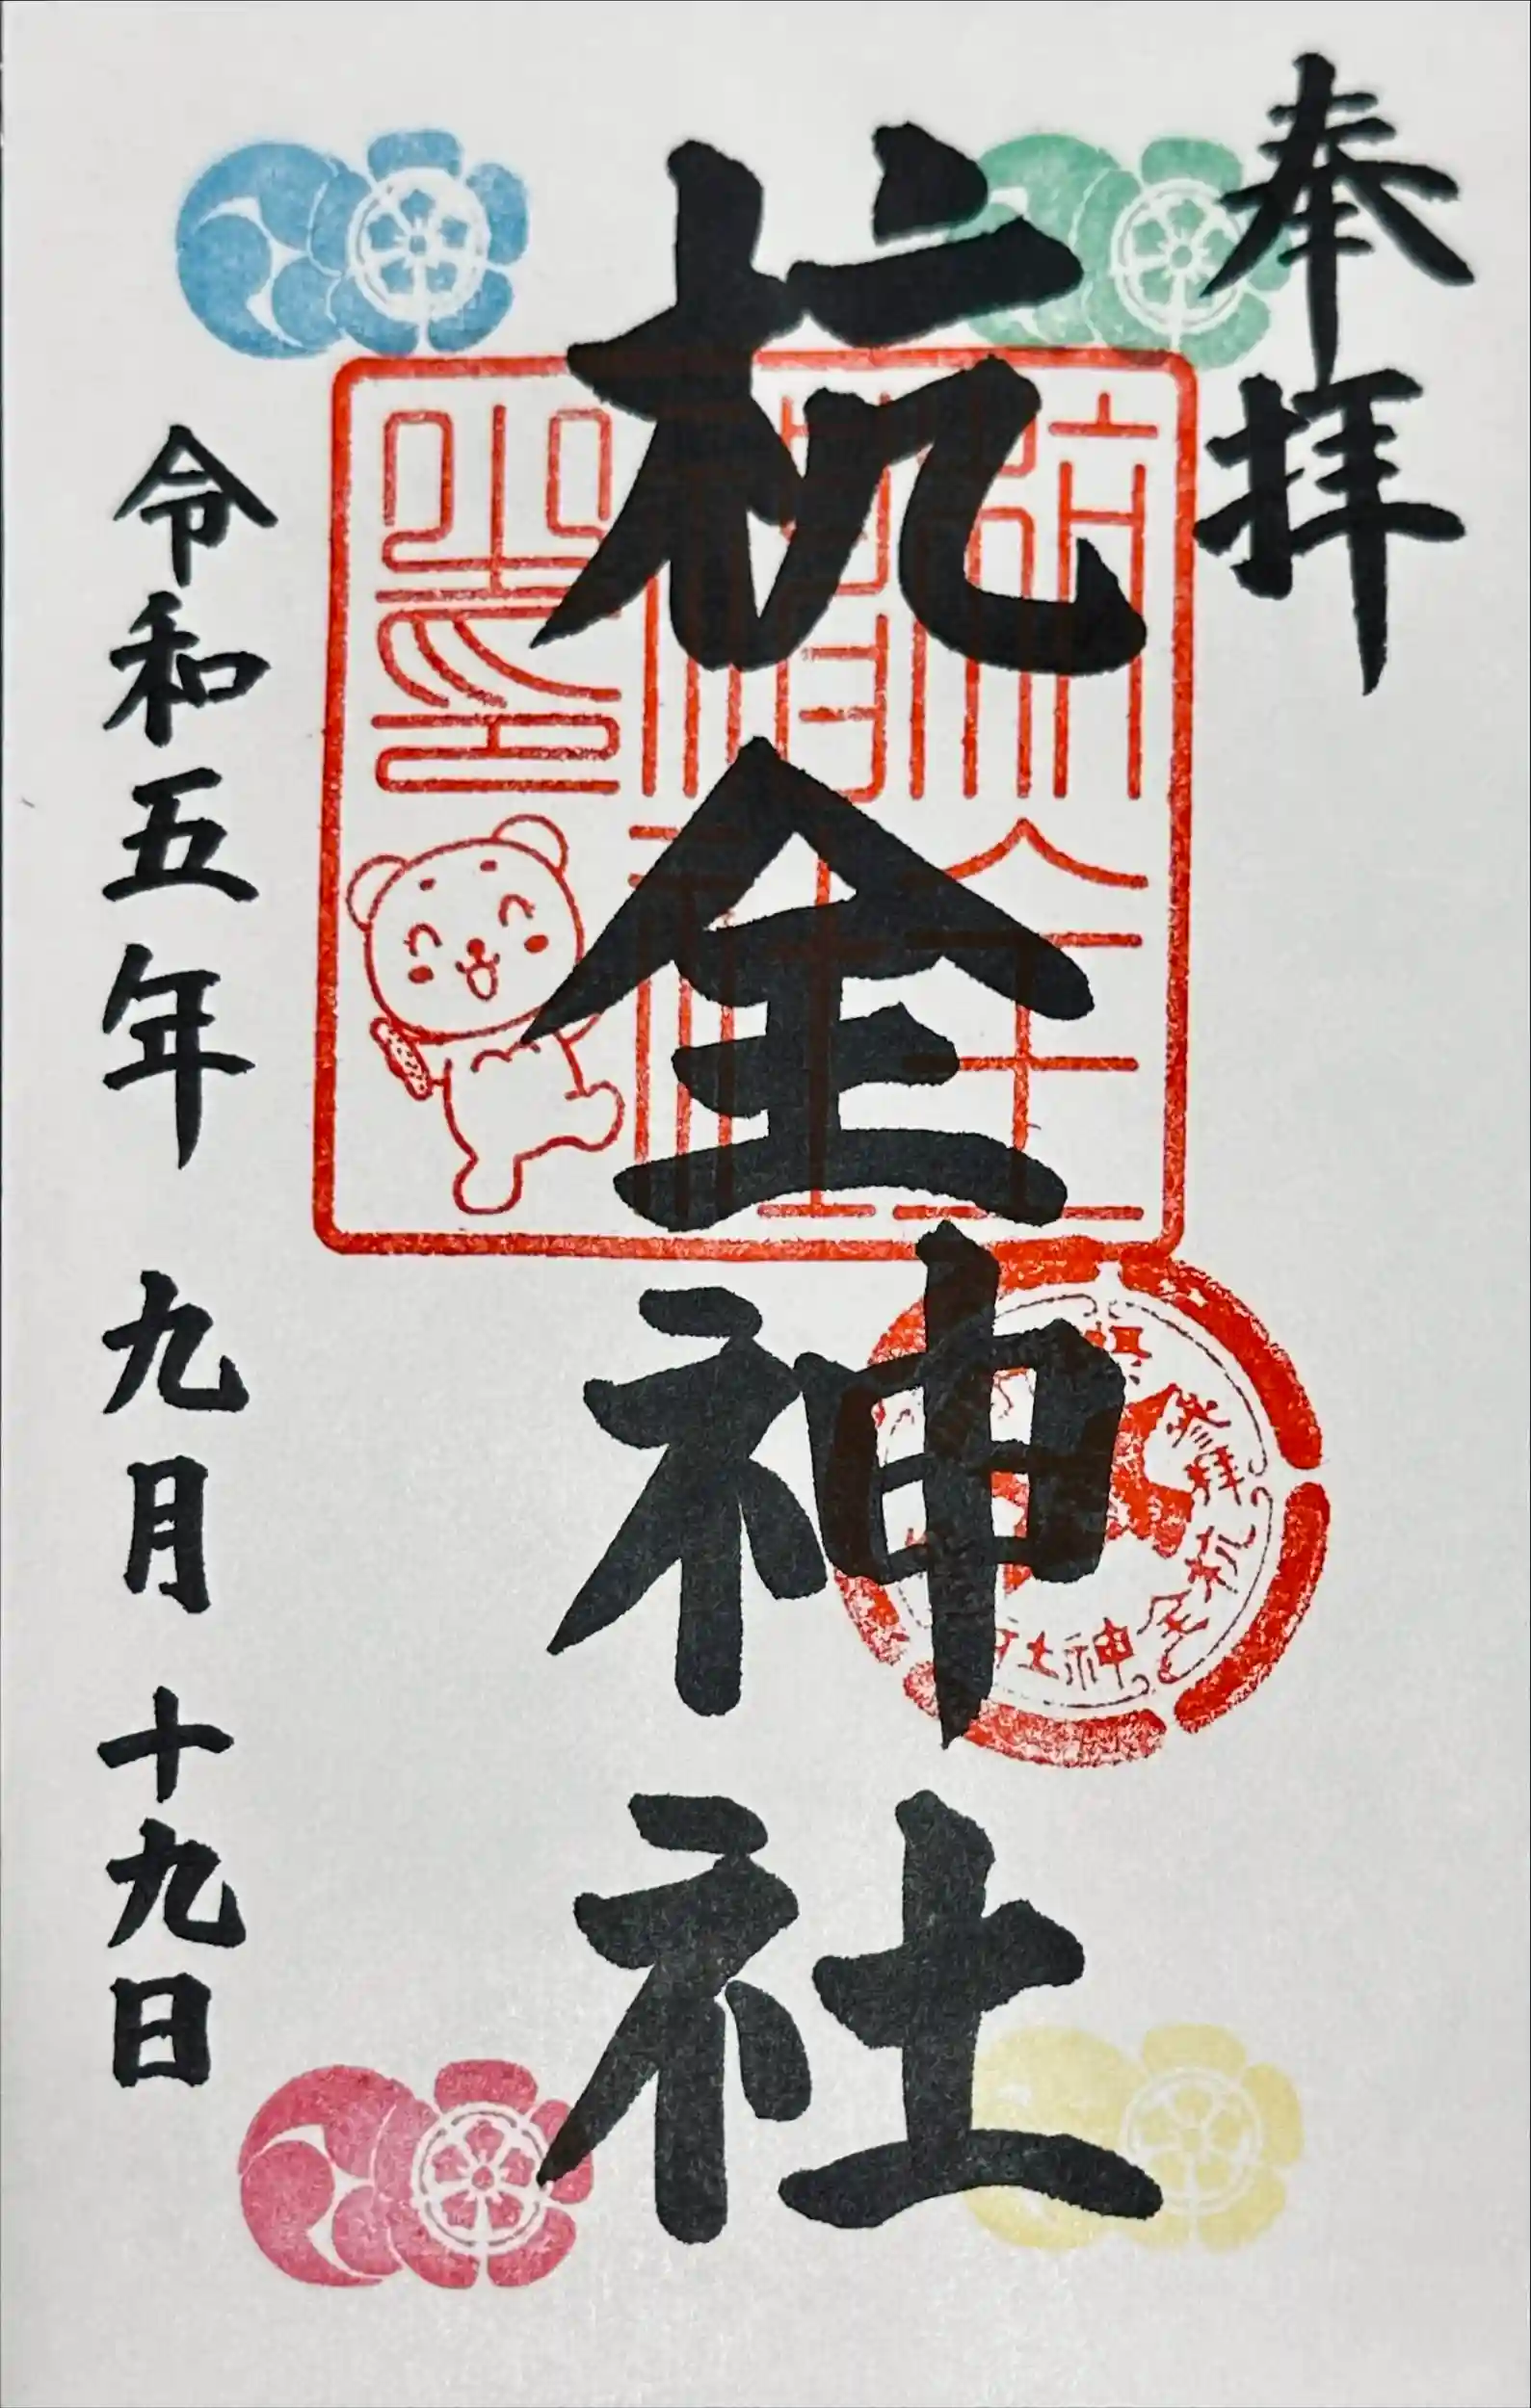 奉拝
杭全神社
令和五年 九月 十九日
杭全
神社
之印
参拝 杭全神社